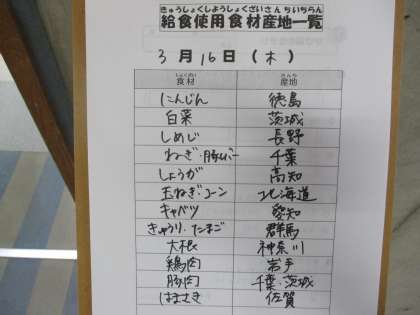 きゅうしょくしようしょくざいさんちいちらん
給食使用食材産地一覧
3月16日(木)
しょくざい さんち
食材 産地
にんじん 徳島
白菜 茨城
しめじ 長野
ねぎ・豚レバー 千葉
しょうが 高知
玉ねぎ・コーン 北海道
キャベツ 愛知
きゅうり・たまご 群馬
大根 神奈川
鶏肉 岩手
豚肉 千葉・茨城
佐賀